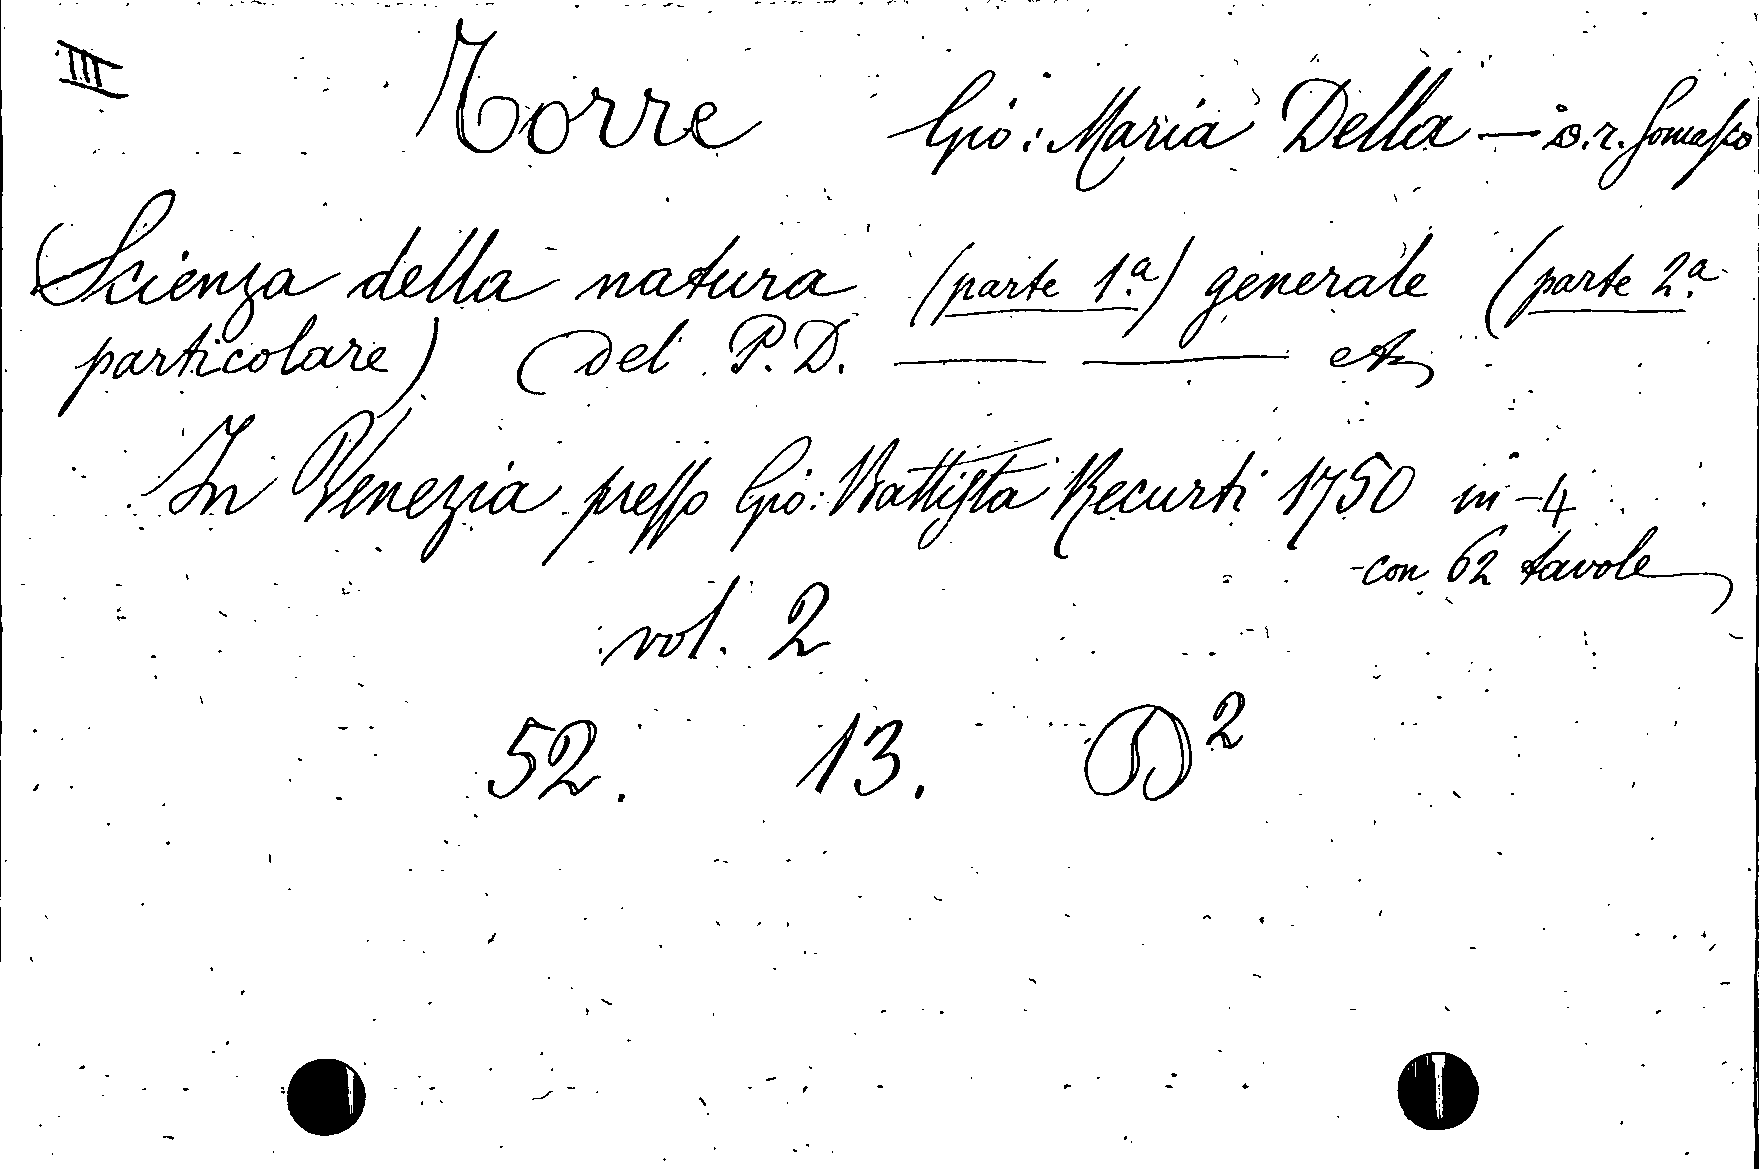 III Torre Gio: Maria Della — o.r. Somasco
Scienza della natura (parte 1ª) generale (parte 2ª
particolare) (Del P. D. — — etc
In Venezia presso Gio: Battista Recurti 1750 in-4
con 62 tavole
vol. 2
52. 13. D²